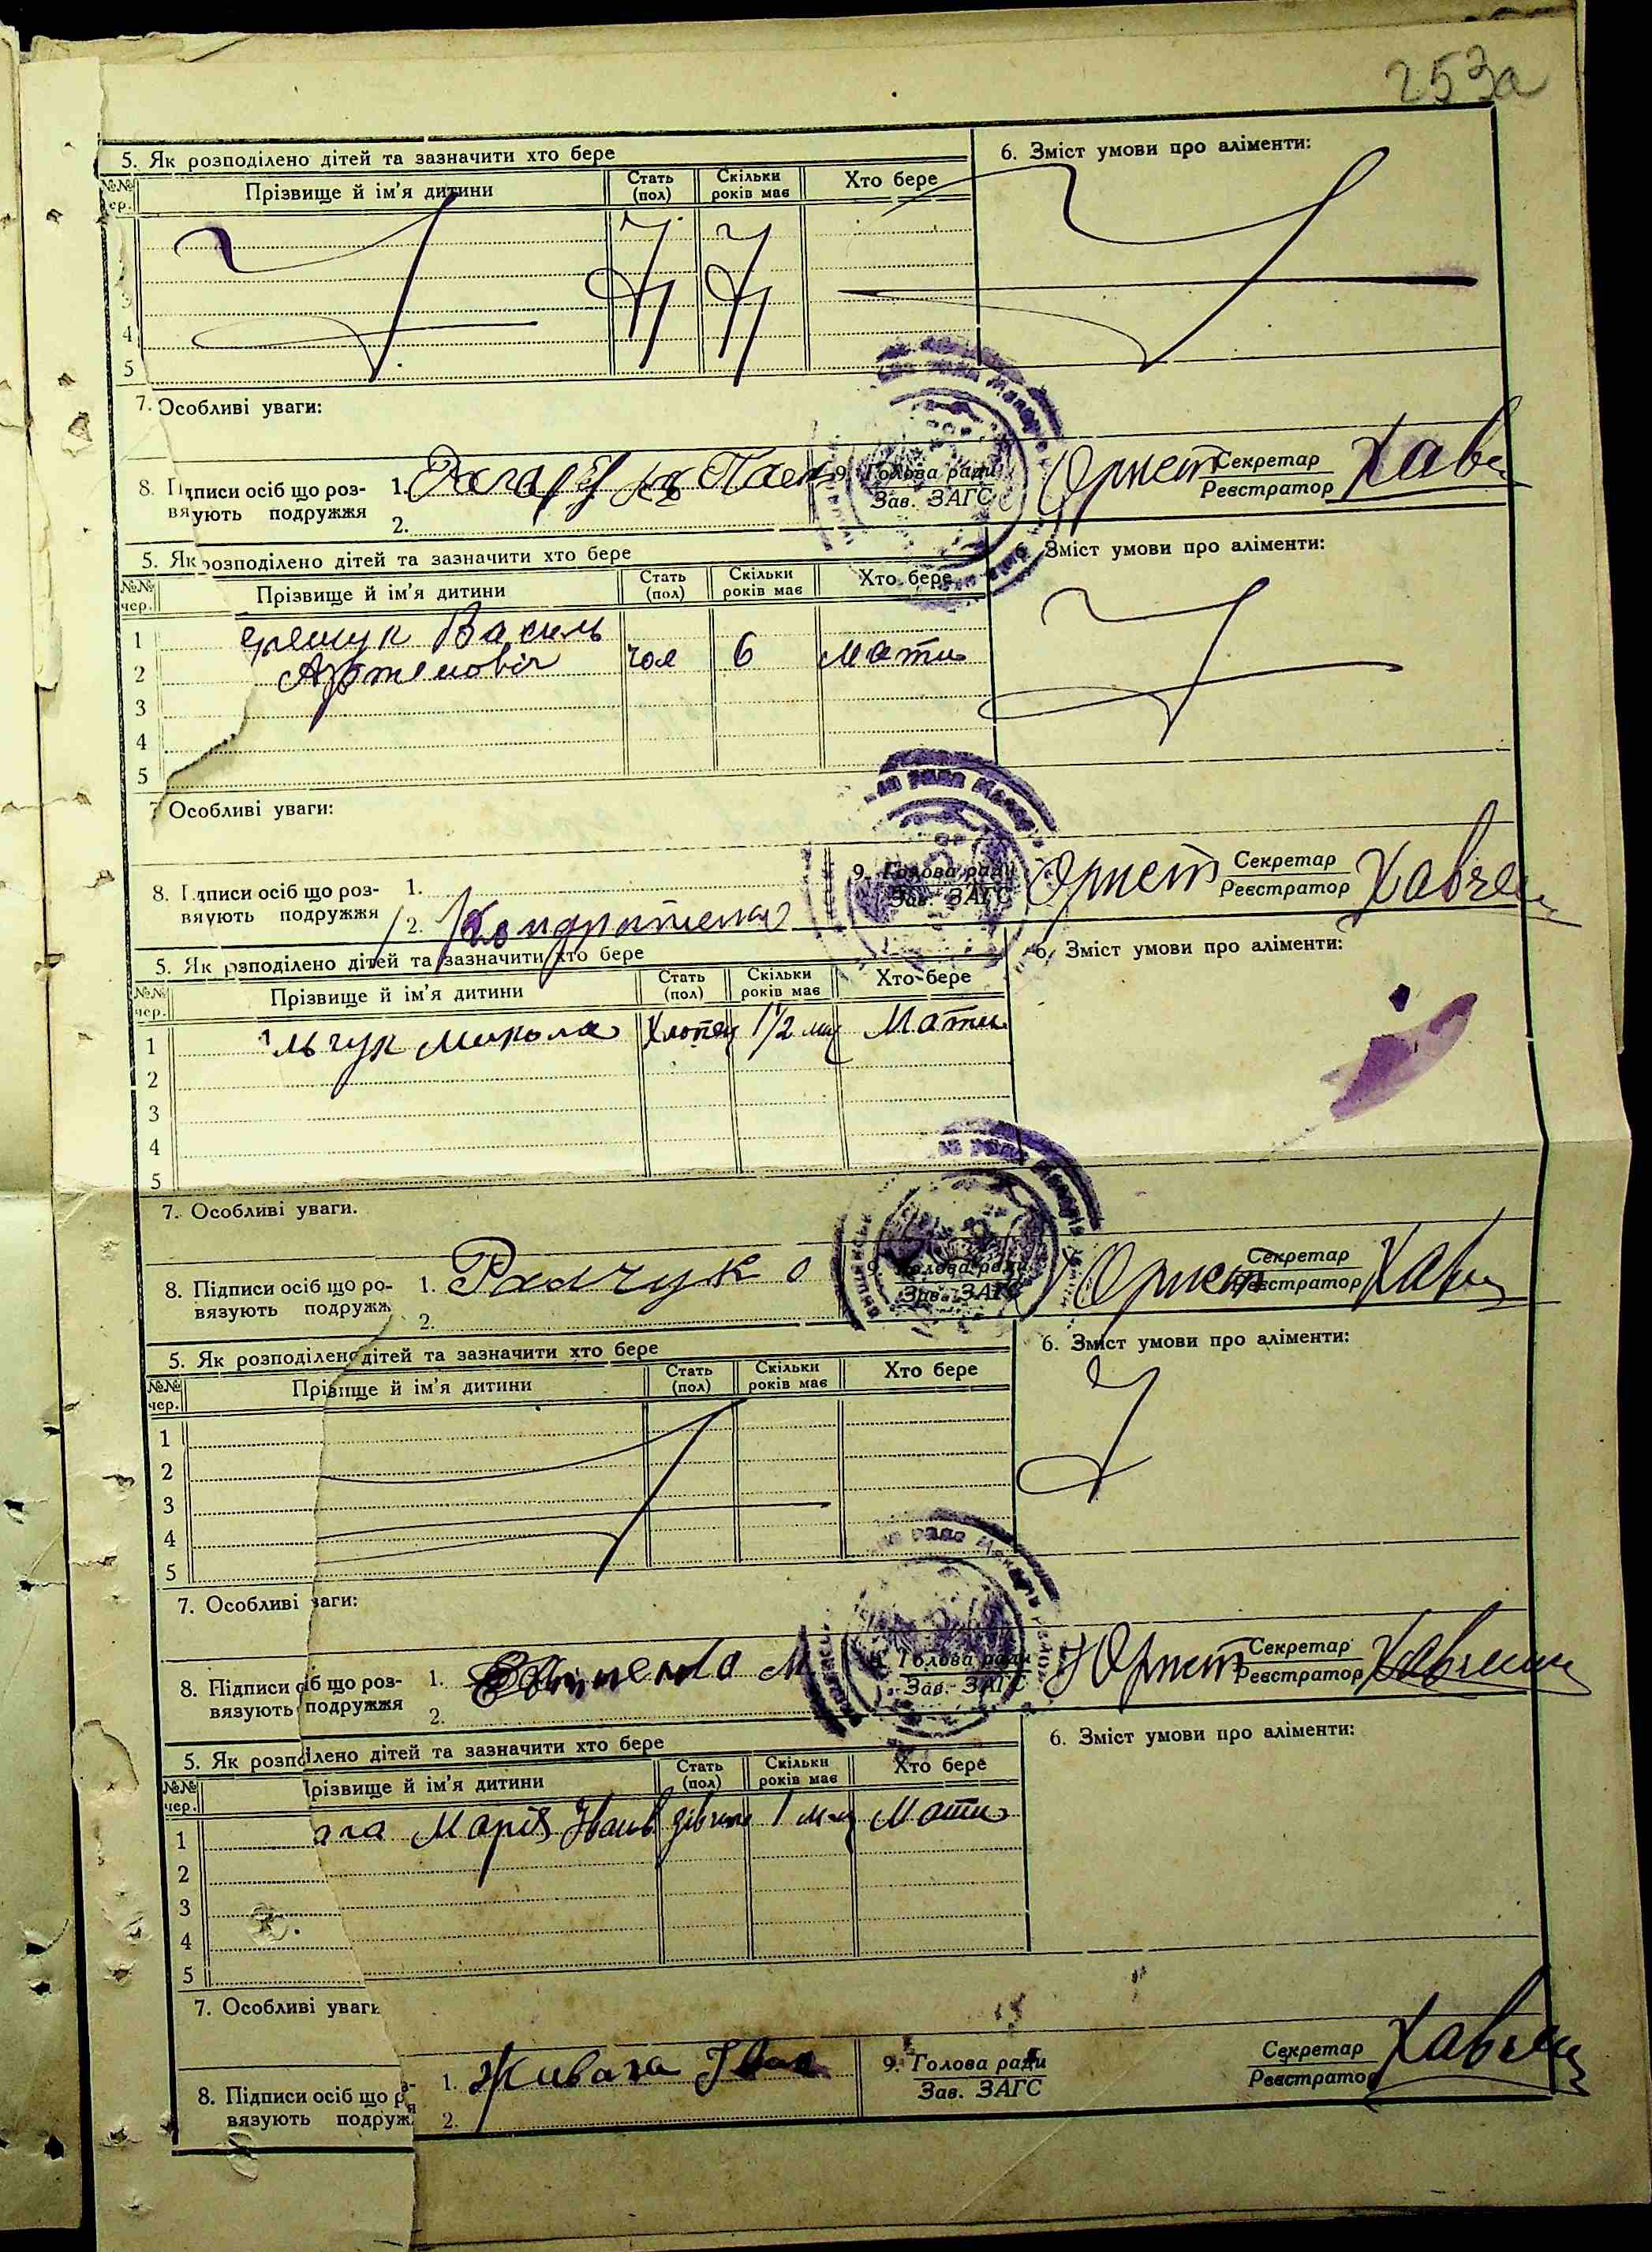 253а
5. Як розподілено дітей та зазначити хто бере
6. Зміст умови про аліменти:
№№ ер.
Прізвище й ім'я дитини
Стать (пол)
Скільки років має
Хто бере
3
4
5
7. Особливі уваги:
8. Підписи осіб що роз-
вяують подружжя
1.
2.
9. Голова ради
Зав. ЗАГС
Секретар
Реєстратор
5. Як розподілено дітей та зазначити хто бере
6. Зміст умови про аліменти:
№№ чер.
Прізвище й ім'я дитини
Стать (пол)
Скільки років має
Хто бере
1 Василь
2 Артемовіч чол 6 Мати
3
4
5
7 Особливі уваги:
8. Підписи осіб що роз-
вяують подружжя
1.
2. Кондратенко
9. Голова ради
Зав. ЗАГС
Секретар
Реєстратор Хавче
5. Як розподілено дітей та зазначити хто бере
6. Зміст умови про аліменти:
№№ чер.
Прізвище й ім'я дитини
Стать (пол)
Скільки років має
Хто бере
1 льчук Микола Хлопец 1½ Мати
2
3
4
5
7. Особливі уваги.
8. Підписи осіб що ро-
вязують подружж
1.
2.
9. Голова ради
Зав. ЗАГС
Секретар
Реєстратор
5. Як розподілено дітей та зазначити хто бере
6. Зміст умови про аліменти:
№№ чер.
Прізвище й ім'я дитини
Стать (пол)
Скільки років має
Хто бере
1
2
3
4
5
7. Особливі ваги:
8. Підписи осіб що роз-
вязують подружжя
1.
2.
Голова ради
Зав. ЗАГС
Секретар
Реєстратор
5. Як розподілено дітей та зазначити хто бере
6. Зміст умови про аліменти:
№№ чер.
Прізвище й ім'я дитини
Стать (пол)
Скільки років має
Хто бере
1 ага Марія Іванів 1 Мати
2
3
4
5
7. Особливі уваги
8. Підписи осіб що р
вязують подруж
1. Живага Іван
2.
9. Голова ради
Зав. ЗАГС
Секретар
Реєстратор